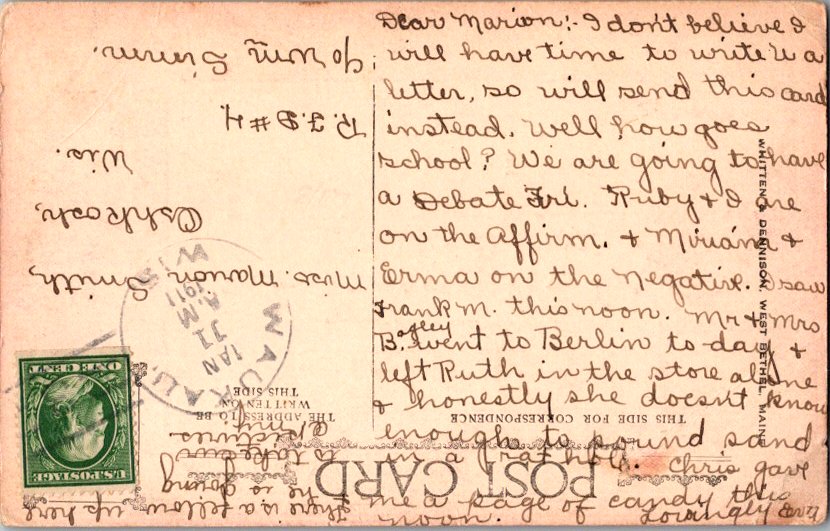 Dear Marion:- I don't believe I
will have time to write u a
letter, so will send this card
instead. Well how goes
school? We are going to have
a Debate Fri. Ruby & I are
on the Affirm. & Miriam &
Erma on the Negative. I saw
Frank M. this noon. Mr & Mrs
B.agley went to Berlin to-day &
left Ruth in the store alone
& honestly she doesn't know
enough to pound sand
in a rat hole. Chris gave
me a page of candy this
noon. Lovingly
There is a fellow up here
he is going
to take our
pictures
POST CARD
THIS SIDE FOR CORRESPONDENCE
THE ADDRESS TO BE
WRITTEN ON
THIS SIDE
WAUKAU,
JAN
11
A.M
1911
WIS
U.S. POSTAGE
ONE CENT
Miss. Marion Smith,
Oshkosh,
Wis.
R.F.D #4.
℅ Wm
WHITTEN & DENNISON, WEST BETHEL, MAINE